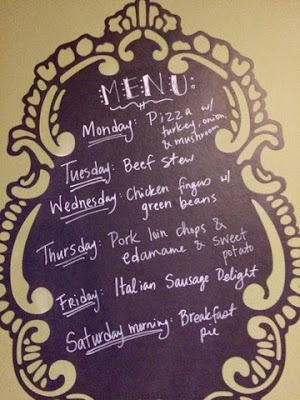 MENU:
Monday: Pizza w/
turkey, onion,
& mushroom
Tuesday: Beef stew
Wednesday: Chicken fingers w/
green beans
Thursday: Pork loin chops &
edamame & sweet
potato
Friday: Italian Sausage Delight
Saturday morning: Breakfast
pie